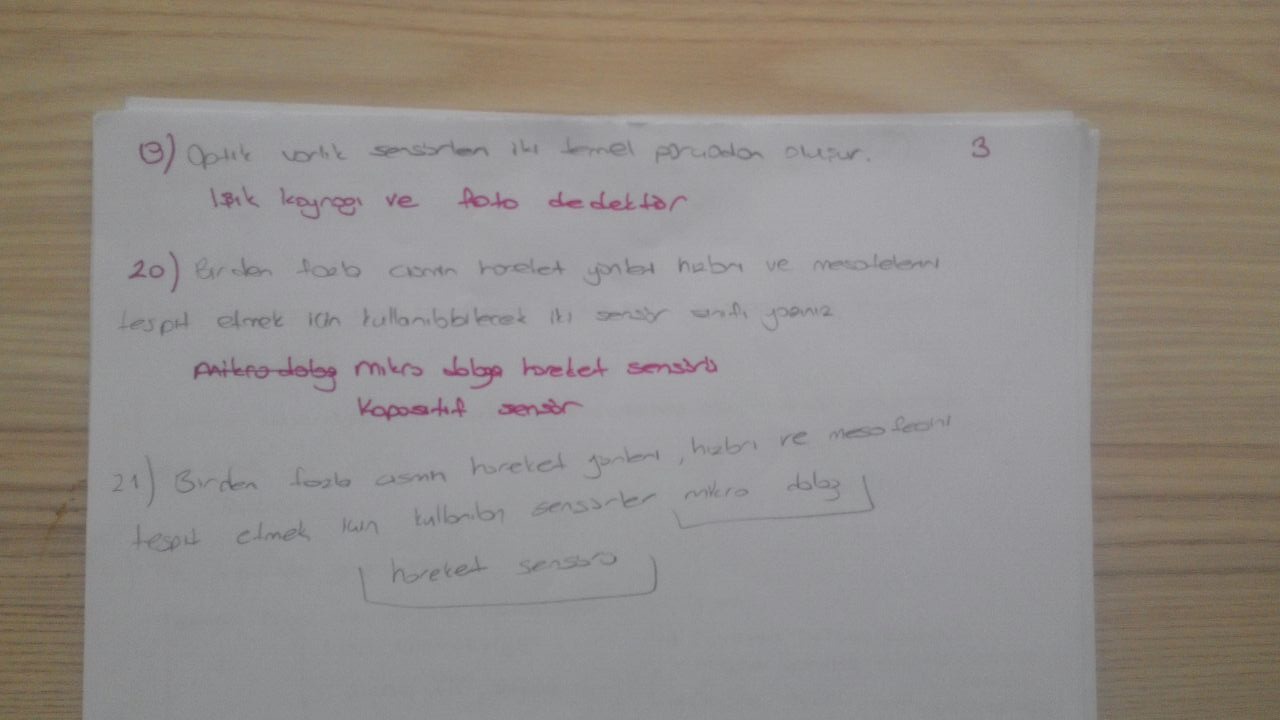 19) Optik varlık sensörleri iki temel parçadan oluşur. 3
Işık kaynağı ve foto dedektör
20) Birden fazla cismin hareket yönleri hızları ve mesafelerini
tespit etmek için kullanılabilecek iki sensör sınıfı yazınız
mikro dalga mikro dalga hareket sensörü
Kapasitif sensör
21) Birden fazla cismin hareket yönlerini, hızları ve mesafesini
tespit etmek için kullanılan sensörler mikro dalga
hareket sensörü